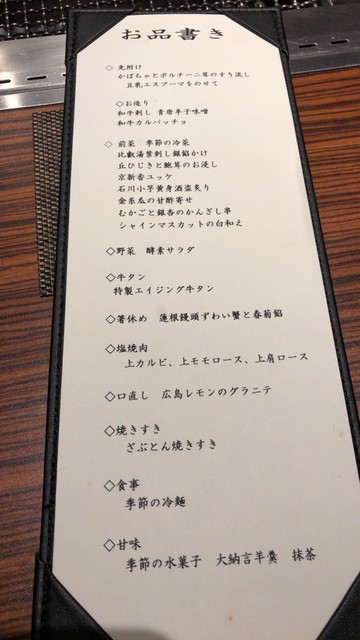 お品書き
◇ 先附け
かぼちゃとポルチーニ茸のすり流し
豆乳エスプーマをのせて
◇お造り
和牛刺し 青唐辛子味噌
和牛カルパッチョ
◇ 前菜 季節の冷菜
比叡湯葉刺し銀餡かけ
丘ひじきと鮑茸のお浸し
京新香ユッケ
石川小芋黄身酒盗炙り
金糸瓜の甘酢寄せ
むかごと銀杏のかんざし串
シャインマスカットの白和え
◇野菜 酵素サラダ
◇牛タン
特製エイジング牛タン
◇箸休め 蓮根饅頭ずわい蟹と春菊餡
◇塩焼肉
上カルビ、上モモロース、上肩ロース
◇口直し 広島レモンのグラニテ
◇焼きすき
ざぶとん焼きすき
◇食事
季節の冷麺
◇甘味
季節の水菓子 大納言羊羹 抹茶